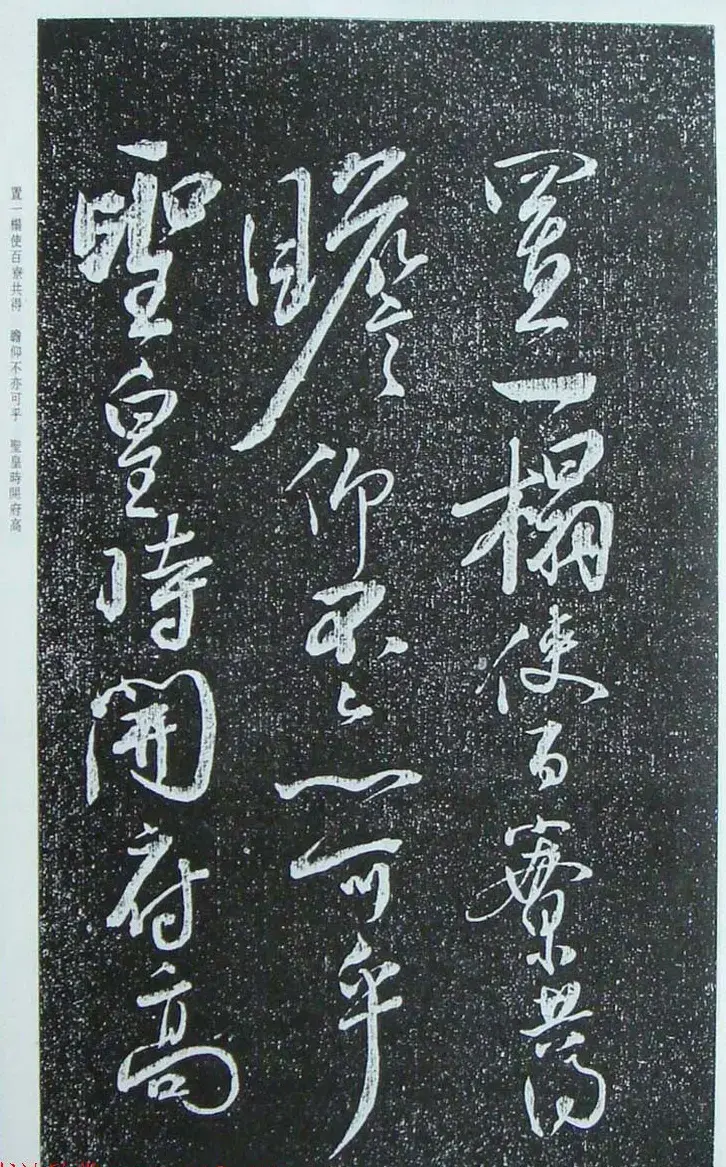 置一榻使百寮共得
瞻仰不亦可乎
聖皇時開府高
置一榻使百寮共得 瞻仰不亦可乎 聖皇時開府高